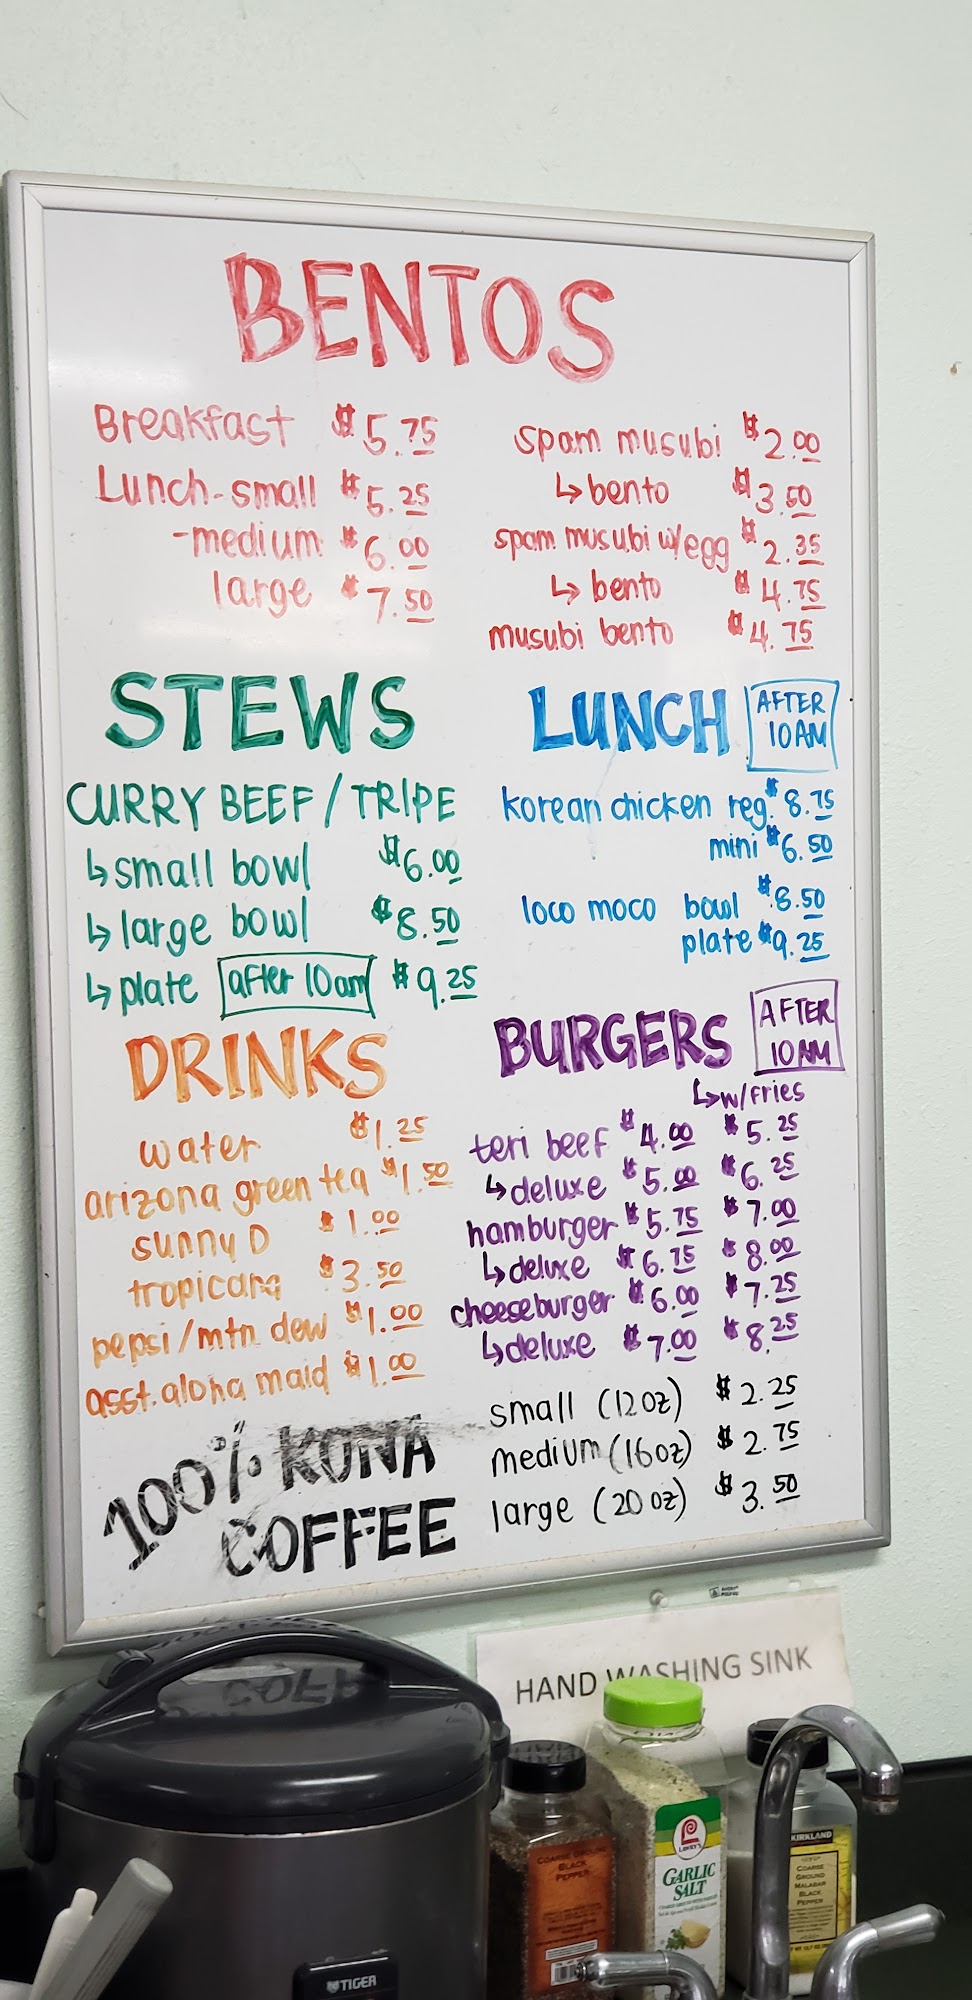 BENTOS
Breakfast $5.75
Lunch-small $5.25
-medium $6.00
large $7.50
spam musubi $2.00
↳bento $3.50
spam musubi w/egg $2.35
↳ bento $4.75
musubi bento $4.75
STEWS
CURRY BEEF / TRIPE
↳small bowl $6.00
↳large bowl $8.50
↳plate after 10am $9.25
LUNCH AFTER 10AM
korean chicken reg. $8.75
mini $6.50
loco moco bowl $8.50
plate $9.25
DRINKS
water $1.25
arizona green tea $1.50
sunny D $1.00
tropicana $3.50
pepsi/mtn dew $1.00
asst. aloha maid $1.00
BURGERS AFTER 10AM
↳w/fries
teri beef $4.00 $5.25
↳deluxe $5.00 $6.25
hamburger $5.75 $7.00
↳deluxe $6.75 $8.00
cheeseburger $6.00 $7.25
↳deluxe $7.00 $8.25
100% KONA
COFFEE
small (12oz) $2.25
medium (16oz) $2.75
large (20oz) $3.50
HAND WASHING SINK
TIGER
COARSE GROUND
BLACK
PEPPER
LAWRY'S
GARLIC
SALT
KIRKLAND
COARSE
GROUND
MALABAR
BLACK
PEPPER